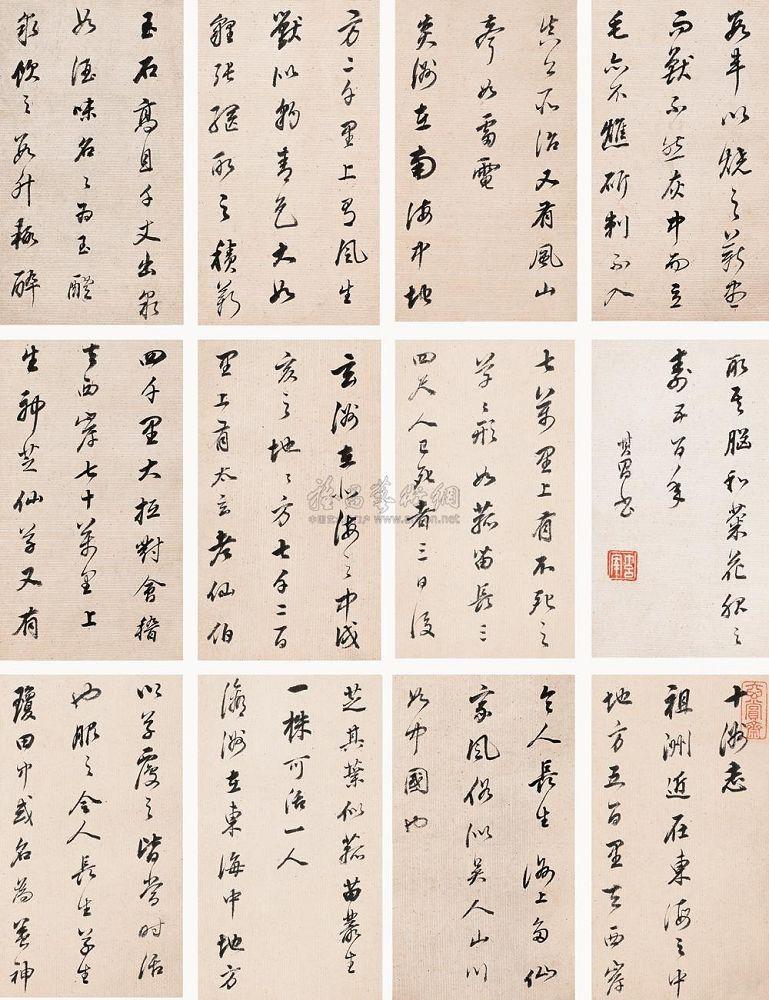 十洲志
祖洲近在東海之中
地方五百里去西岸
七萬里上有不死之
草々形如菰苗長三
四尺人已死者三日後
以草覆之皆當時活
也服之令人長生草生
瓊田中或名為養神
芝其葉似菰苗叢生
一株可活一人
瀛洲在東海中地方
四千里大抵對會稽
去西岸七十萬里上
生神芝仙草又有
玉石高且千丈出泉
如酒味名之為玉醴
泉飲之數升輒醉
令人長生洲上多仙
家風俗似吳人山川
如中國也
玄洲在北海之中戌
亥之地々方七千二百
里上有太玄都仙伯
真公所治又有風山
聲如雷電
炎洲在南海中地
方二千里上有風生
獸似豹青色大如
狸張網取之積薪
數車以燒之薪盡
而獸不然灰中而立
毛亦不燋斫刺不入
取其腦和菊花服之
壽五百年
其昌書
玄賞齋
雅昌藝術網